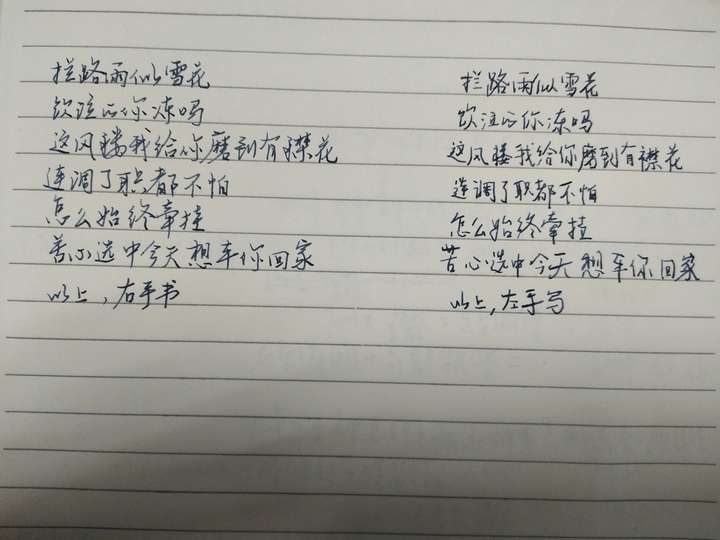 拦路雨似雪花
饮泣的你冻吗
这风褛我给你磨到有襟花
连调了职都不怕
怎么始终牵挂
苦心选中今天想车你回家
以上，右手书
拦路雨似雪花
饮泣的你冻吗
这风褛我给你磨到有襟花
连调了职都不怕
怎么始终牵挂
苦心选中今天想车你回家
以上，左手写